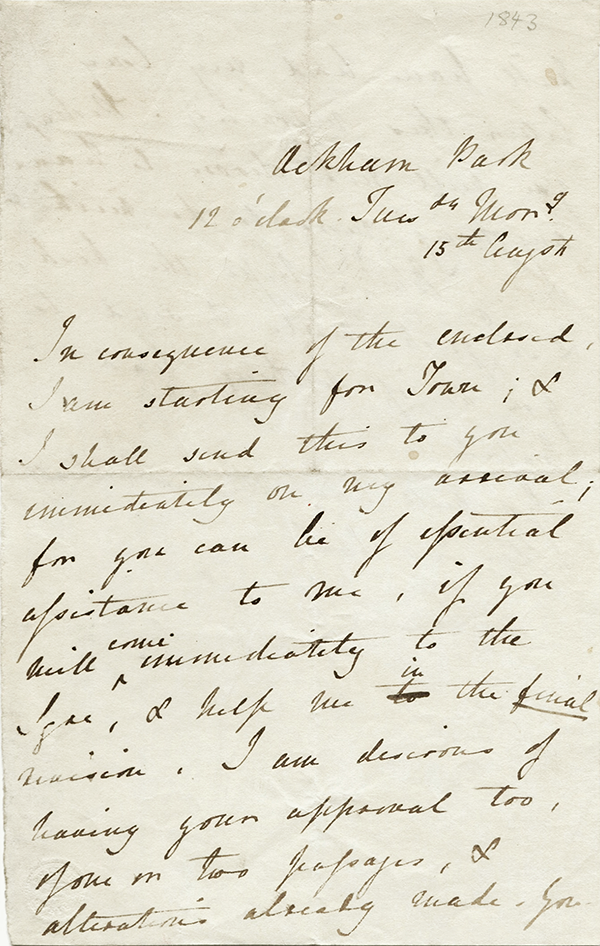 1843
Ockham Park
12 o'clock. Tuesdy Morng.
15th Augst
In consequence of the enclosed,
I am starting for Town; &
I shall send this to you
immediately on my arrival;
for you can be of essential
assistance to me, if you
will come immediately to the
Sqre, & help me to in the final
revision. I am desirous of
having your approval too,
of one or two passages, &
alterations already made. You